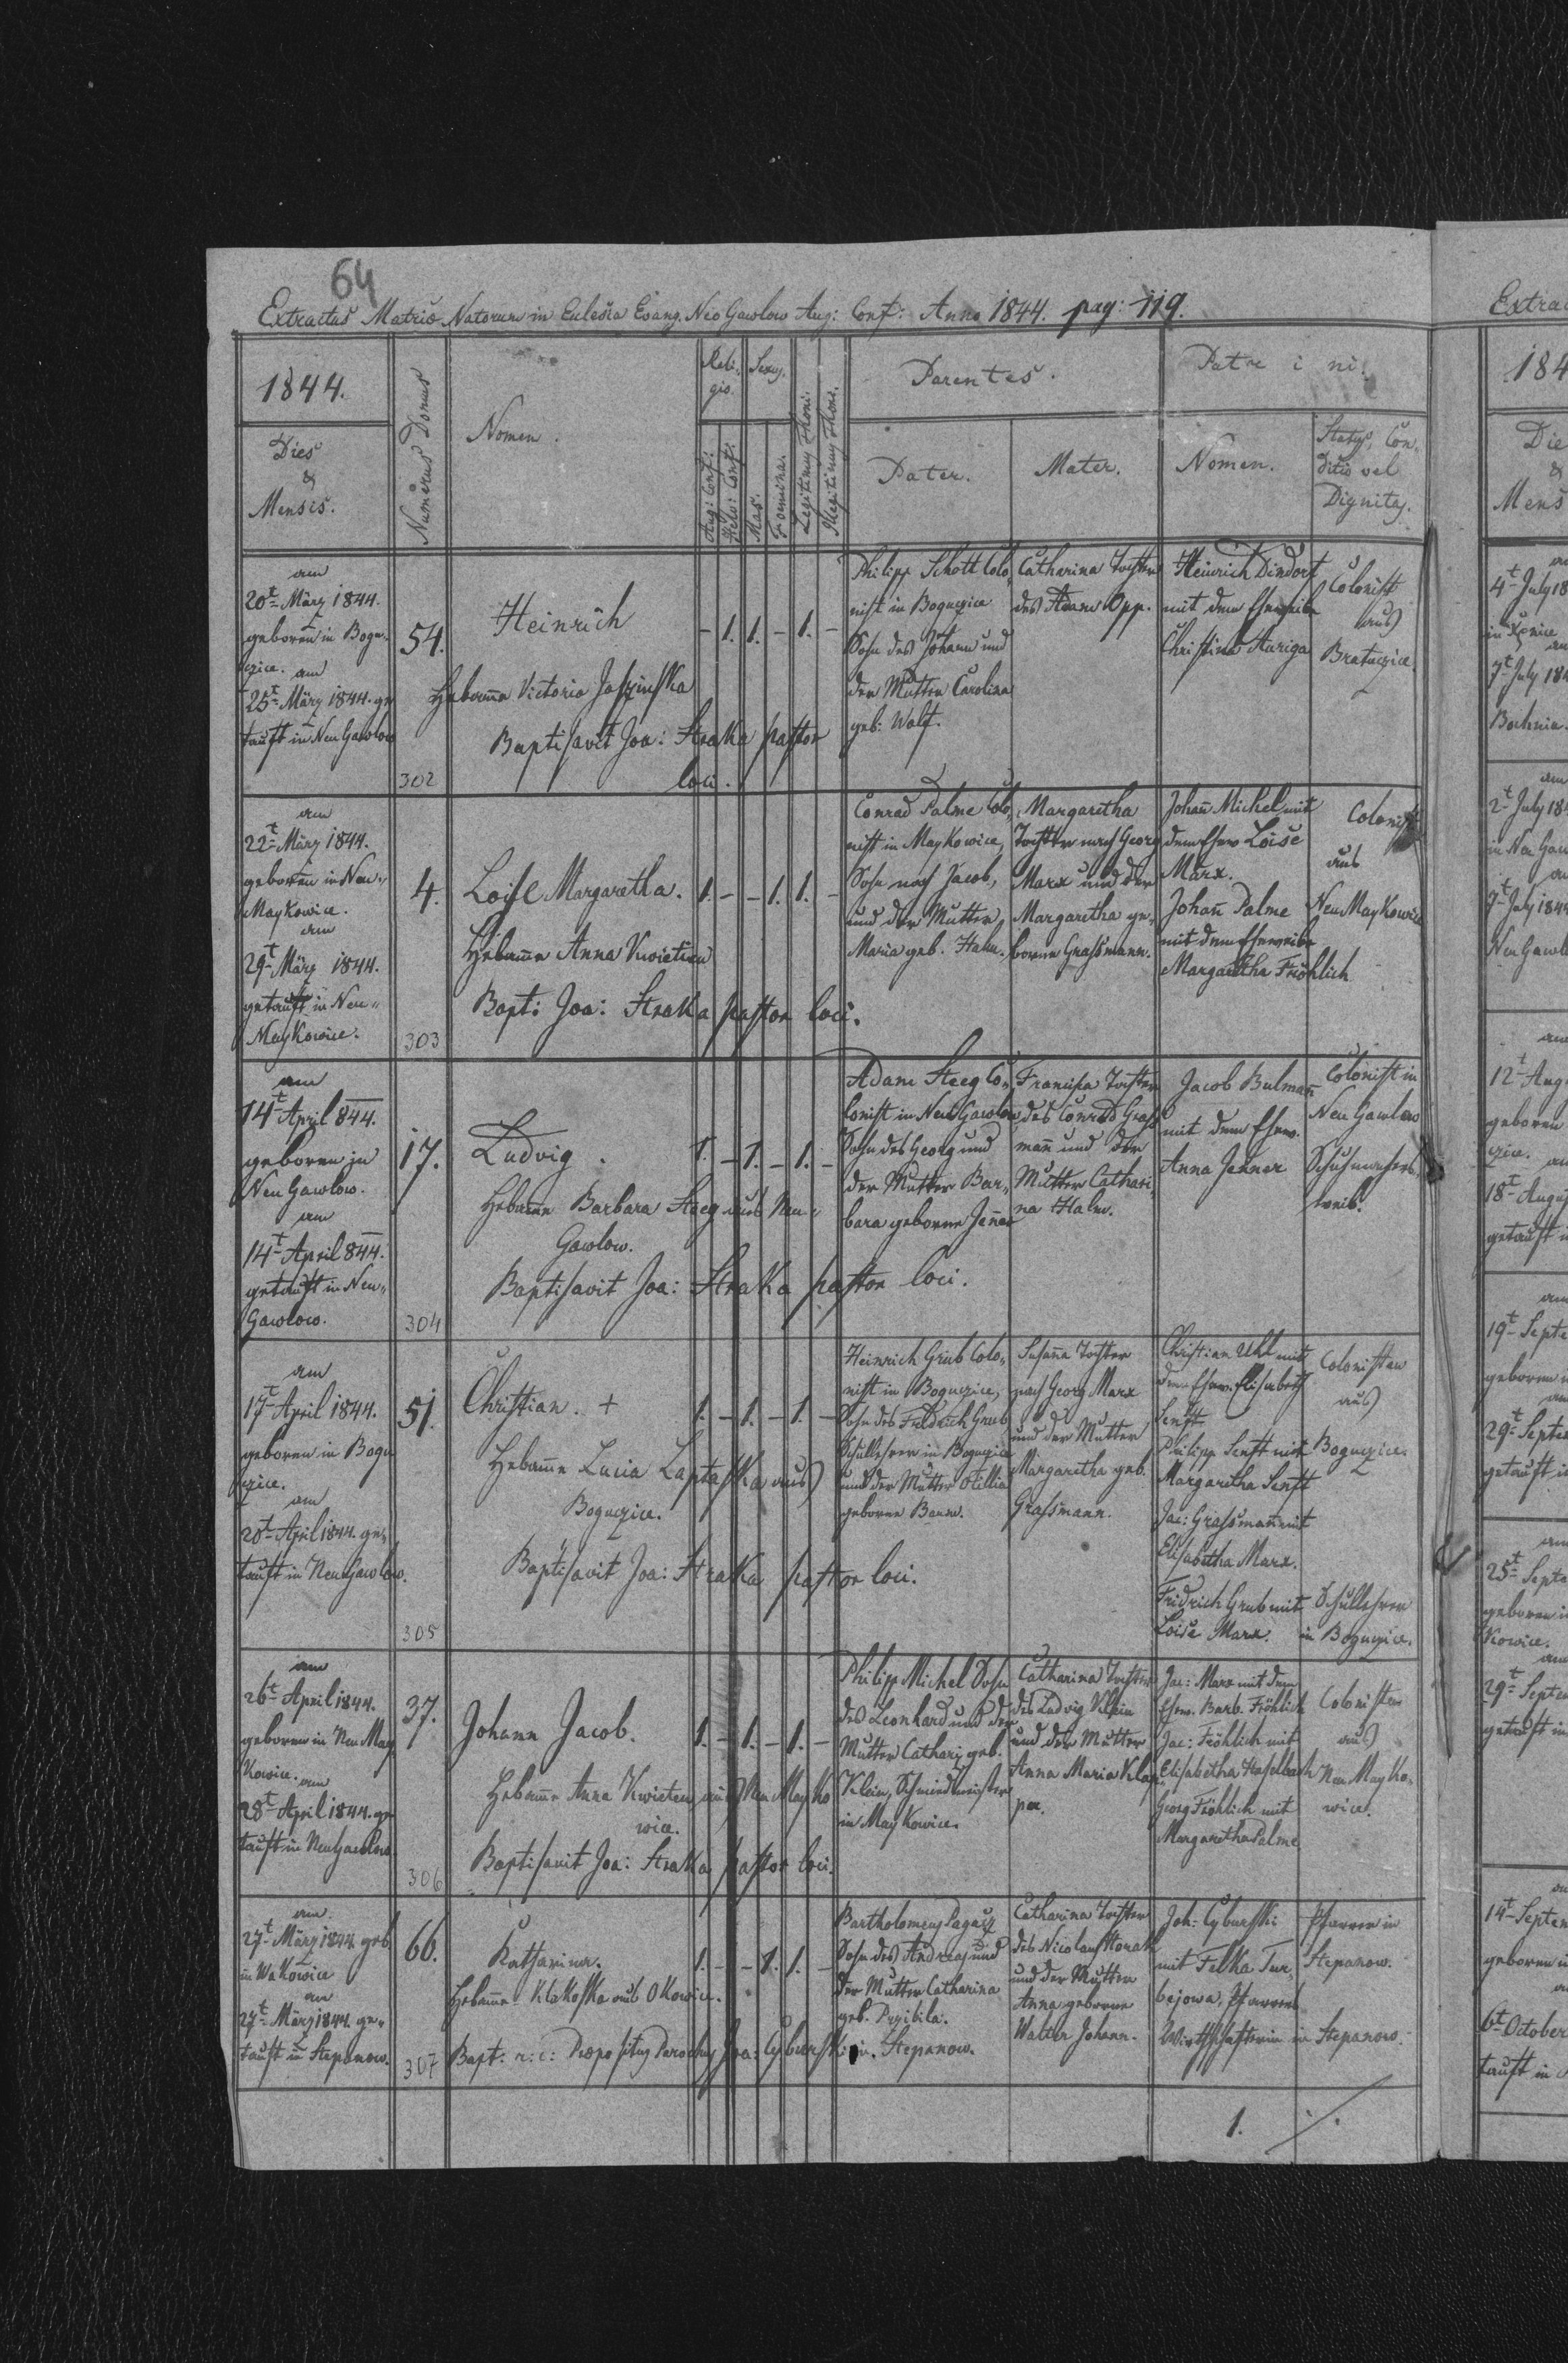 64
Extractus Matris Natorum in Eclesia Evang. Neo Gawlow Aug: Conf: Anno 1844. pag: 119.
1844.
Dies
&
Mensis.
Numerus Domus
Nomen.
Reli-
gio.
Aug: Conf:
Helv: Conf:
Sexus.
Mas.
Foemina.
Legitimus Thori.
Illegitimus Thori.
Parentes.
Pater.
Mater.
Patrini.
Nomen.
Status, Con-
ditio vel
Dignitas.
am
20t März 1844.
geboren in Bogu-
czice. am
25t März 1844. ge
tauft in Neu Gawlow
54.
302
Heinrich
Hebamme Victoria Jaszinska
Baptisavit Joa: Straka pastor
loci.
- 1. 1. - 1. -
Philipp Schott Colo-
nist in Boguczice
Sohn des Johann und
der Mutter Carolina
geb: Wolf.
Catharina Tochter
des Adam Opp.
Heinrich Dindorf
mit dem Eheweibe
Christina Auriga
Colonist
aus
Bratuczice.
am
22t März 1844.
geboren in Neu-
Maykowice.
am
29t März 1844.
getauft in Neu-
Maykowice.
4.
303
Loise Margaretha.
Hebamme Anna Kwieten
Bapt: Joa: Straka pastor loci.
1. - - 1. 1. -
Conrad Palme Colo-
nist in Maykowice,
Sohn nach Jacob,
und der Mutter
Maria geb. Hahn.
Margaretha
Tochter nach Georg
Marx und der
Margaretha ge-
borene Grassmann.
Johann Michel mit
dem Ehew Loise
Marx.
Johann Palme
mit dem Eheweibe
Margaretha Fröhlich
Colonist
aus
Neu Maykowice
am
14t April 844.
geboren in
Neu Gawlow.
am
14t April 844.
getauft in Neu-
Gawlow.
17.
304
Ludvig.
Hebamme Barbara Steeg aus Neu-
Gawlow.
Baptisavit Joa: Straka pastor loci.
1. - 1. - 1. -
Adam Steeg Co-
lonist in Neu Gawlow
Sohn des Georg und
der Mutter Bar-
bara geborene Jenner
Francisca Tochter
des Conrad Grass
mann und der
Mutter Cathari-
na Halm.
Jacob Bulmann
mit dem Ehew.
Anna Jenner
Colonist in
Neu Gawlow
Schuhmachers
weib.
am
17t April 1844.
geboren in Bogu
czice.
am
20t April 1844. ge-
tauft in Neu Gawlow.
51.
305
Christian. +
Hebamme Lucia Laptaska aus
Boguczice.
Baptisavit Joa: Straka pastor loci.
1. - 1. - 1. -
Heinrich Grub Colo-
nist in Boguczice,
Sohn des Fridrich Grub
Schullehrer in Boguczice
und der Mutter Otillia
geborene Baum.
Susanna Tochter
nach Georg Marx
und der Mutter
Margaretha geb.
Grassmann.
Christian Uhl mit
dem Ehew. Elisabeth
Senft
Philipp Senft mit
Margaretha Senft
Jac: Grassmann mit
Elisabetha Marx.
Fridrich Grub mit
Loise Marx.
Colonisten
aus
Boguczice.
Schullehrer
in Boguczice.
am
26t April 1844.
geboren in Neu May
kowice. am
28t April 1844. ge
tauft in Neu Gawlow
37.
306
Johann Jacob.
Hebamme Anna Kwieten aus Neu Mayko
wice.
Baptisavit Joa: Straka pastor loci.
1. - 1. - 1. -
Philipp Michel Sohn
des Leonhard und der
Mutter Cathari geb.
Klein, Schmiedmeister
in Maykowice.
Catharina Tochter
des Ludvig Klein
und der Mutter
Anna Maria Klap-
per.
Jac: Marx mit dem
Ehew. Barb. Fröhlich
Jac: Fröhlich mit
Elisabetha Haselbach
Georg Fröhlich mit
Margaretha Palme
Colonisten
aus
Neu Mayko-
wice.
am
27t März 1844 geb.
in Wakowice
am
27t März 1844. ge-
tauft in Stepanow.
66.
307
Katharina.
Hebamme Klakoska aus Okowice.
Bapt: r: c: Praepositus Parochus Joa: Cyburski in Stepanow.
1. - - 1. 1. -
Bartholomeus Pagacz
Sohn des Andreas und
der Mutter Catharina
geb. Przibila.
Catharina Tochter
des Nicolaus Horak
und der Mutter
Anna geborene
Walter Johann.
Joh: Cyburski
mit Felka Tur-
bejowa, Pfarrers
Wirthschafterin in Stepanow.
Pfarrer in
Stepanow.
1. ./.
Extra
184
Die
&
Mens
4t July 18
7t July 184
Bochnia.
2t July 184
in Neu Gaw
7t July 1844
Neu Gawl
12t Aug
geboren
czice.
18t Augu
getauft i
19t Septe
geboren i
29t Septe
getauft i
25t Septe
geboren i
kowice.
29t Septe
getauft in
14t Septem
geboren i
6t October
tauft in